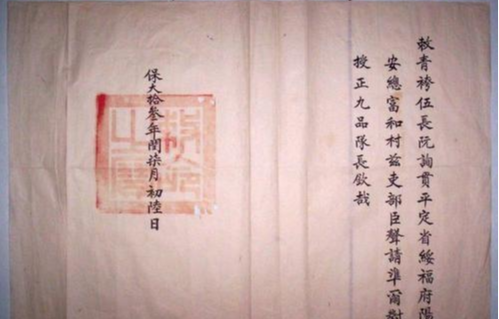 敕青袴伍長阮詢貫平定省綏福府陽
安總富和村兹吏部臣聲請準爾對
授正九品隊長欽哉
保大拾叁年閏柒月初陸日